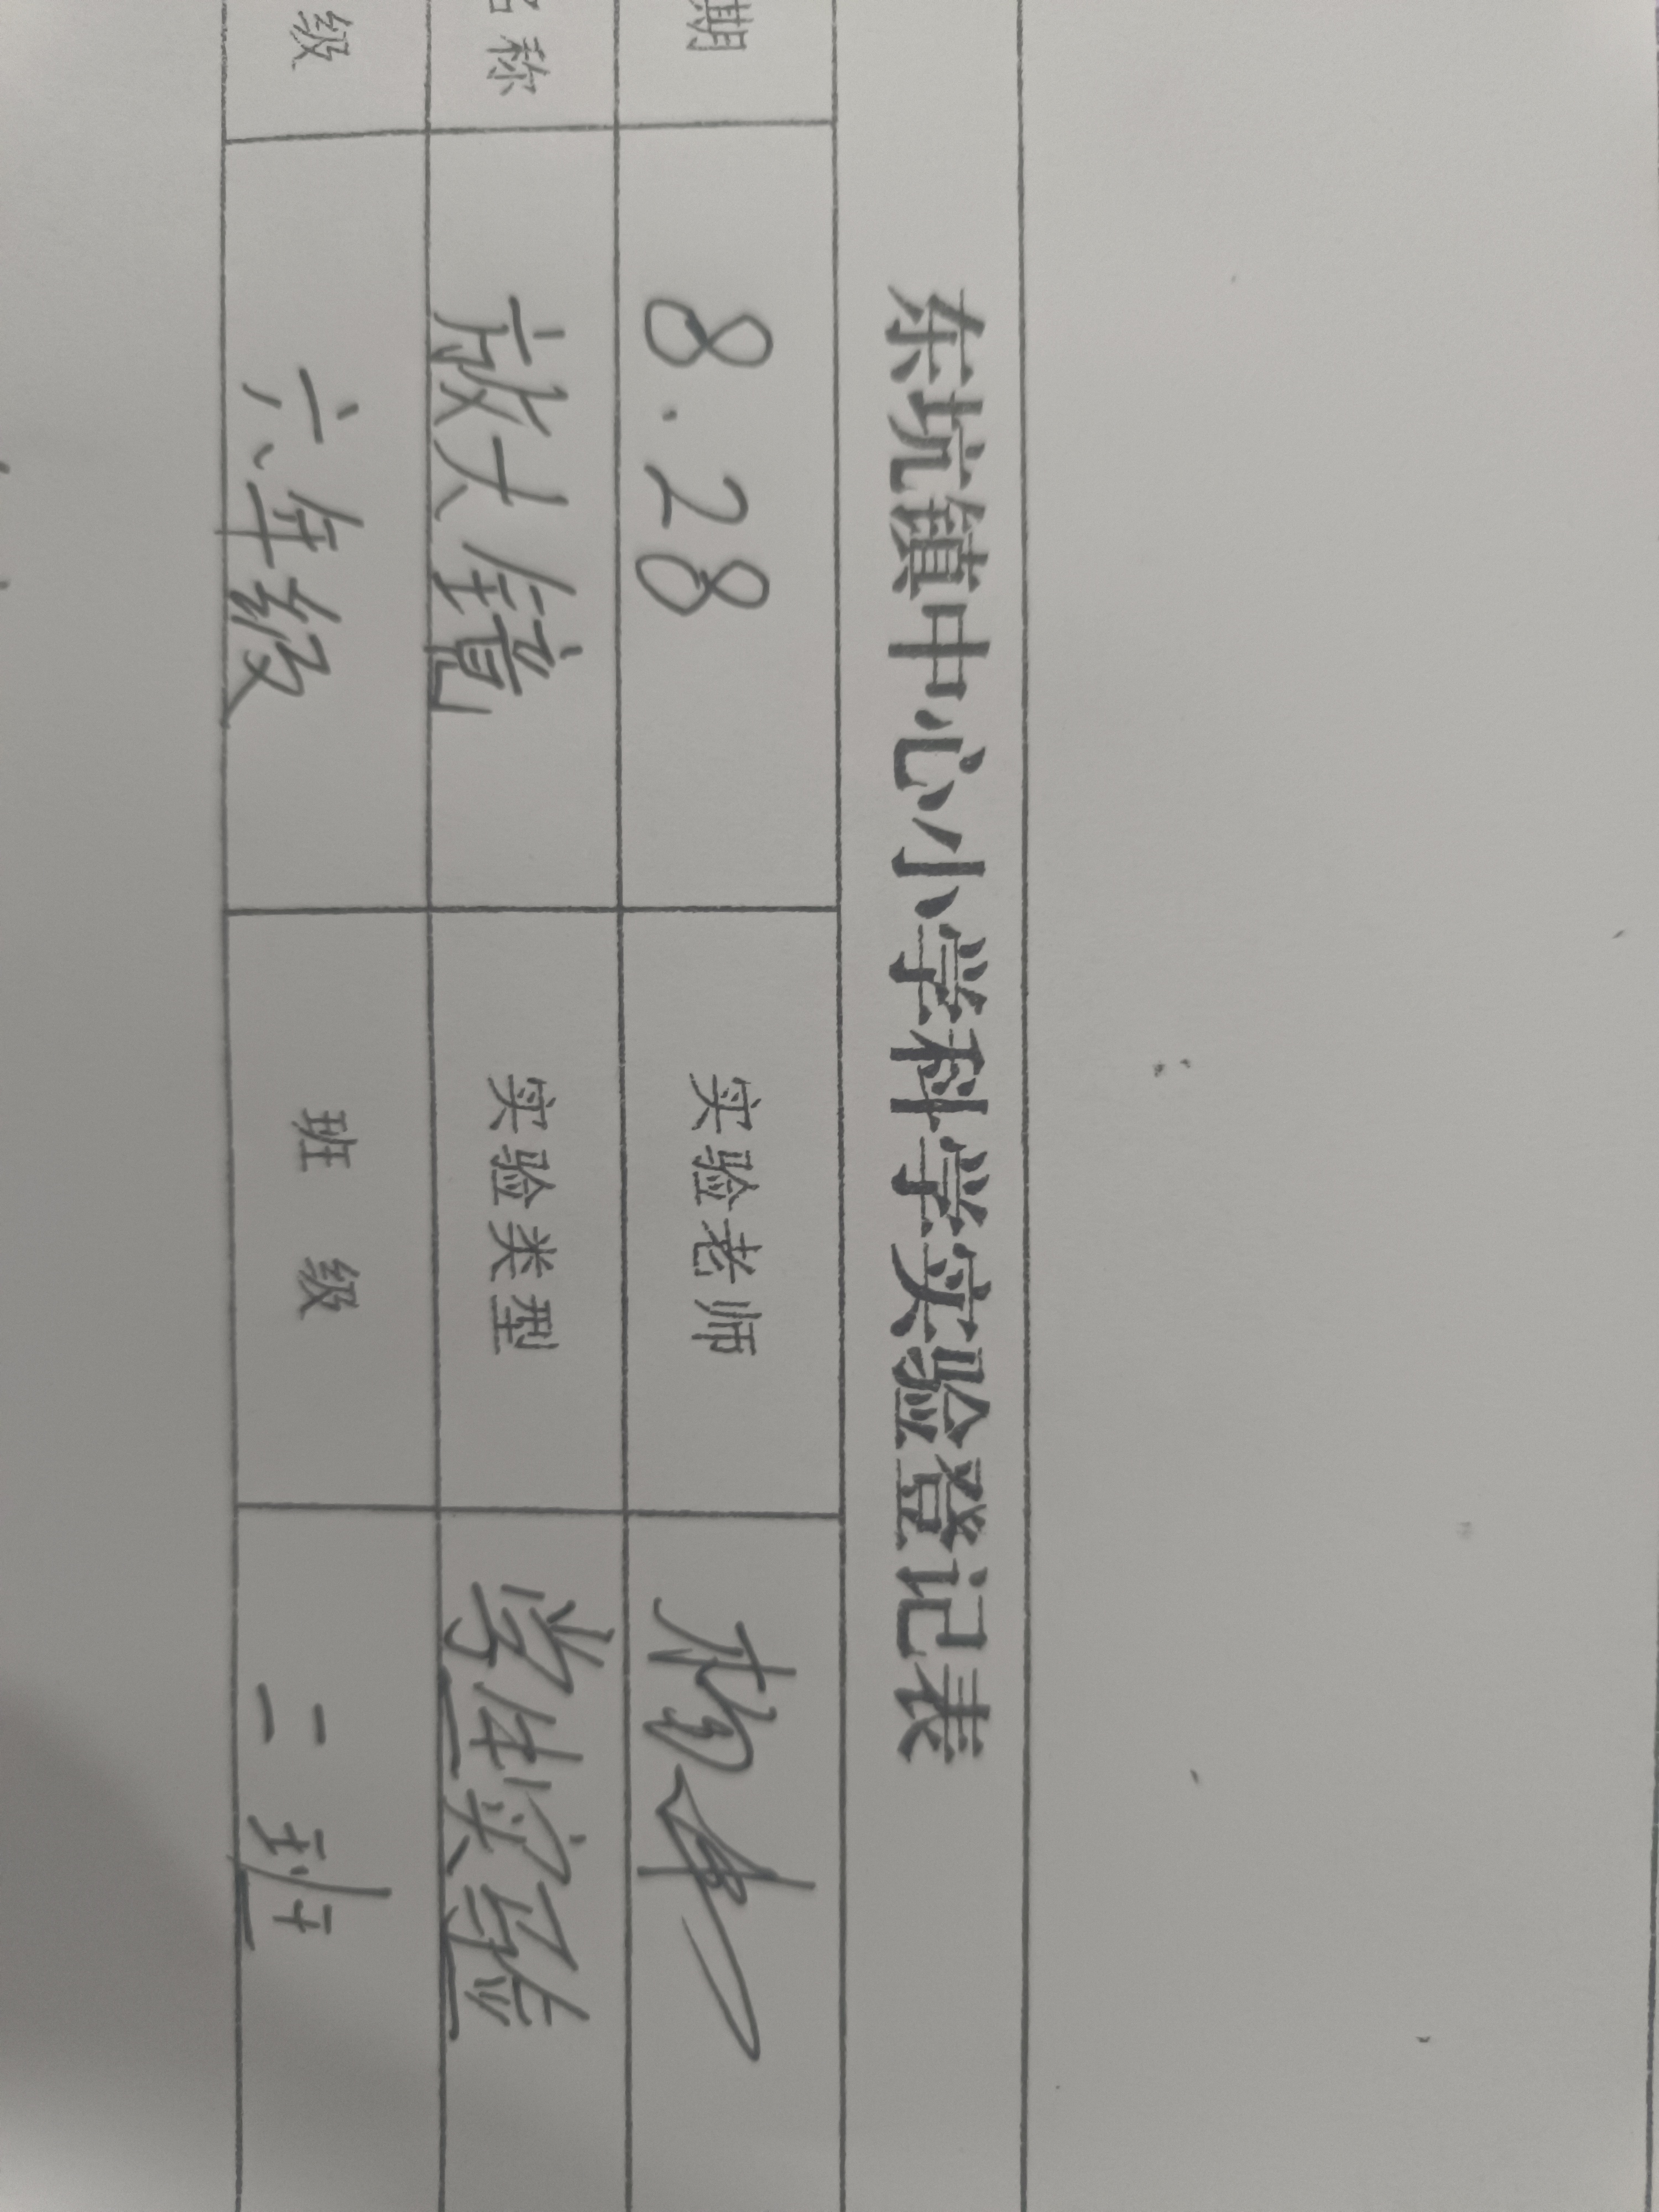 东坑镇中心小学科学实验登记表
期 8.28 实验老师 杨
名称 放大镜 实验类型 学生实验
级 六年级 班 级 二班